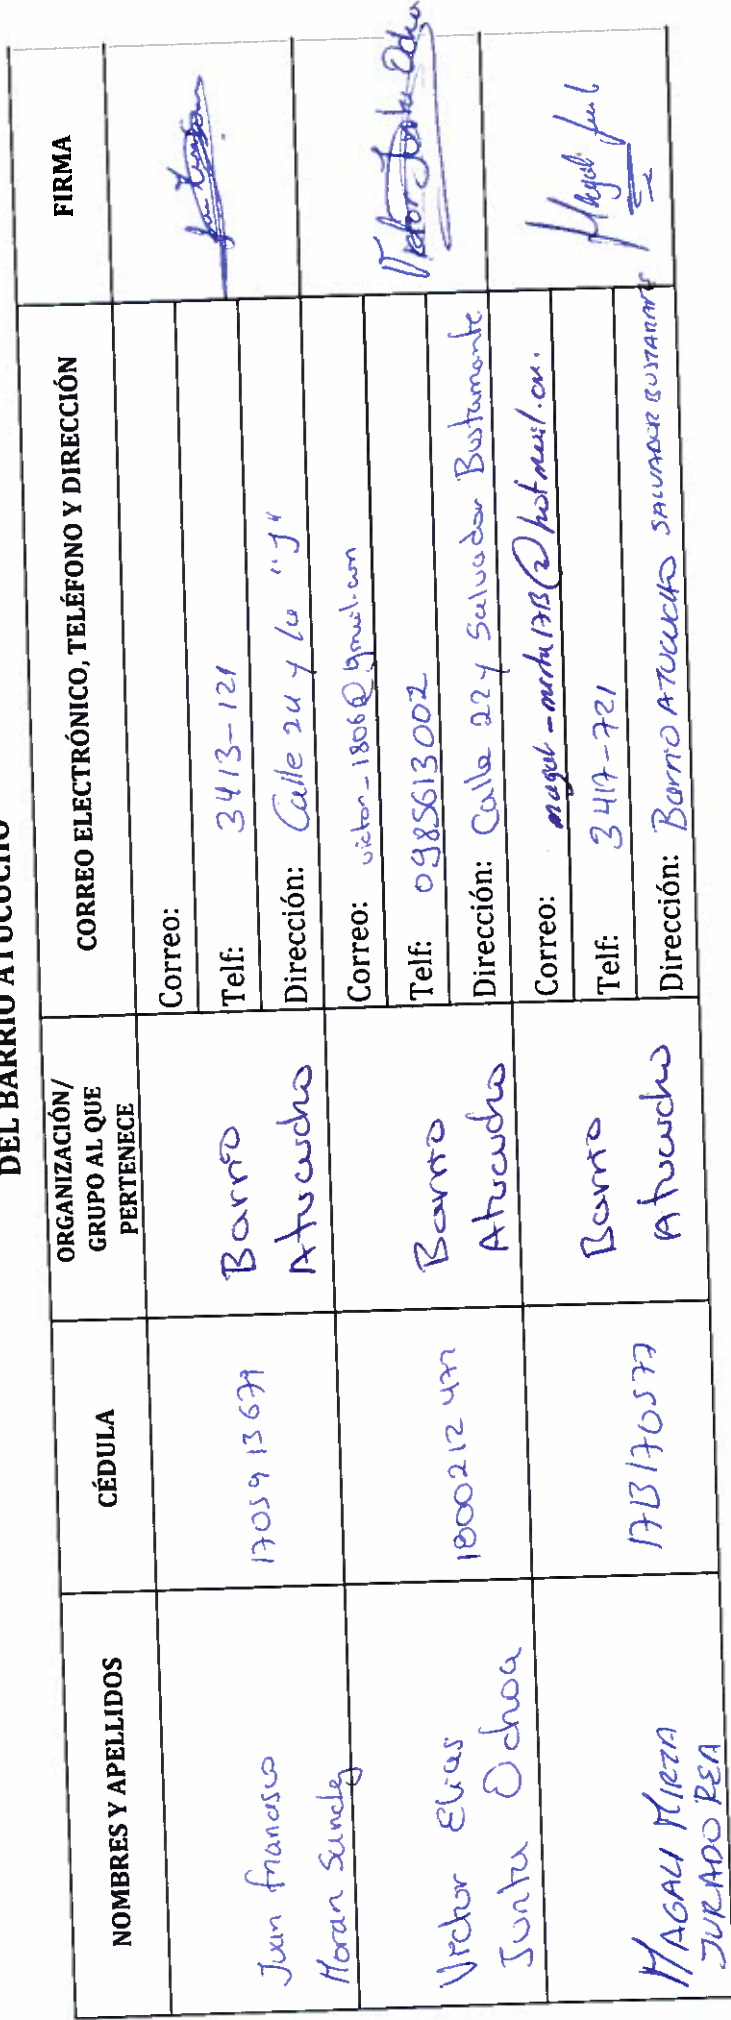 DEL BARRIO ATUCUCHO
NOMBRES Y APELLIDOS
CÉDULA
ORGANIZACIÓN/
GRUPO AL QUE
PERTENECE
CORREO ELECTRÓNICO, TELÉFONO Y DIRECCIÓN
FIRMA
Juan francisco
Moran Sanchez
1705913679
Barrio
Atucucho
Correo:
Telf: 3413-121
Dirección: Calle 24 y la "J"
Victor Elias
Junta Ochoa
Barrio
Atucucho
Correo: victor_1806@gmail.com
Telf: 0985613002
Dirección: Calle 22 y Salvador Bustamante
Victor Junta Ochoa
MAGALI MIRZA
JURADO REA
Barrio
Atucucho
Correo:
Telf: 3417-721
Dirección: Barrio ATUCUCHO SALVADOR BUSTAMANTE